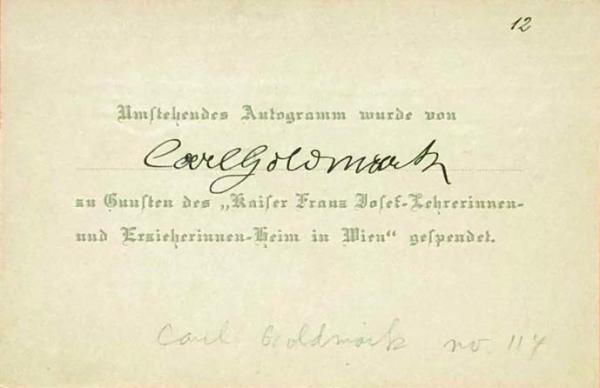 12
Umstehendes Autogramm wurde von
Carl Goldmark
zu Gunsten des „Kaiser Franz Josef-Lehrerinnen-
und Erzieherinnen-Heim in Wien“ gespendet.
Carl Goldmark no. 114